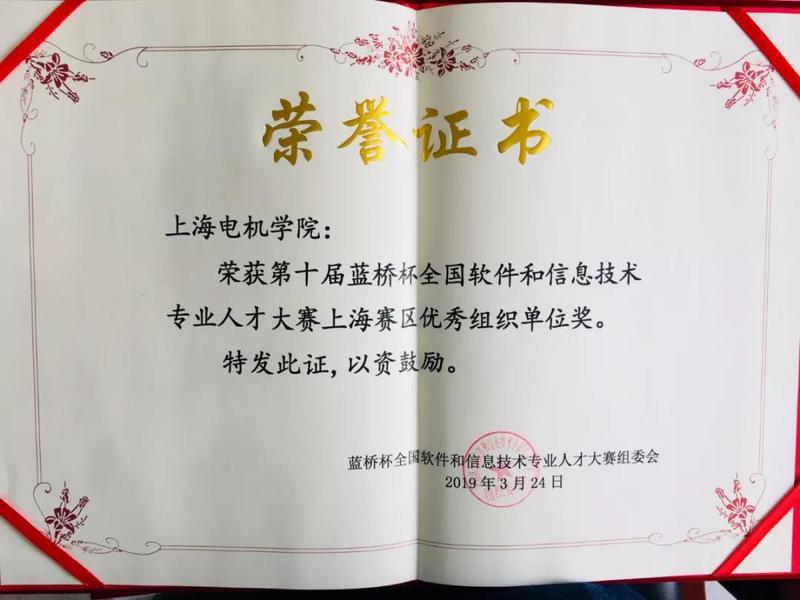 荣誉证书
上海电机学院：
荣获第十届蓝桥杯全国软件和信息技术
专业人才大赛上海赛区优秀组织单位奖。
特发此证，以资鼓励。
蓝桥杯全国软件和信息技术专业人才大赛组委会
2019年3月24日